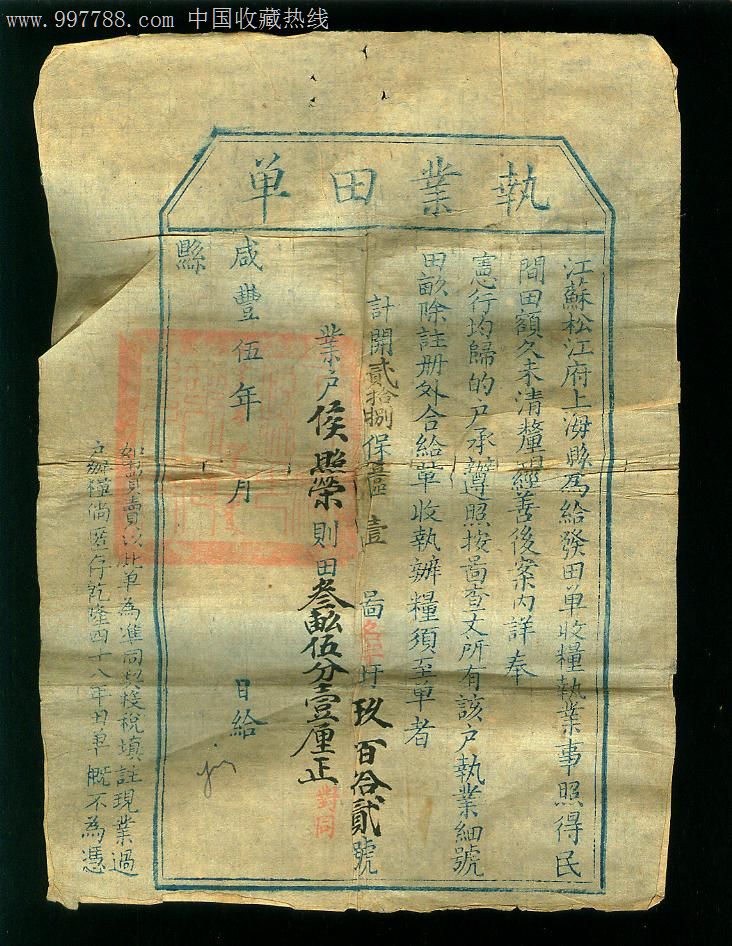 www.997788.com 中国收藏热线
執業田单
江蘇松江府上海縣為給發田单收糧執業事照得民
間田額久未清釐現經善後案內詳奉
憲行均歸的户承辦遵照按啚查丈所有該户執業細號
田畝除註册外合給单收執辦糧須至单者
計開貳拾捌保壹區壹啚名字圩玖百拾貳號
業户侯照榮則田叁畝伍分壹厘正 對同
咸豐伍年 月 日給
縣
如買賣以此单為準同契投稅填註現業過
户辦糧倘匿存乾隆四十八年田单概不為憑